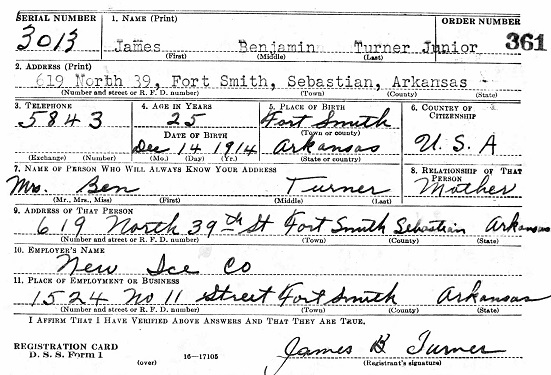 SERIAL NUMBER 1. NAME (Print) ORDER NUMBER
3013 James Benjamin Turner Junior 361
(First) (Middle) (Last)
2. ADDRESS (Print)
619 North 39, Fort Smith, Sebastian, Arkansas
(Number and street or R. F. D. number) (Town) (County) (State)
3. TELEPHONE 4. AGE IN YEARS 5. PLACE OF BIRTH 6. COUNTRY OF CITIZENSHIP
5843 25 Fort Smith
DATE OF BIRTH (Town or county)
Dec 14 1914 Arkansas U.S.A
(Exchange) (Number) (Mo.) (Day) (Yr.) (State or country)
7. NAME OF PERSON WHO WILL ALWAYS KNOW YOUR ADDRESS 8. RELATIONSHIP OF THAT PERSON
Mrs. Ben Turner Mother
(Mr., Mrs., Miss) (First) (Middle) (Last)
9. ADDRESS OF THAT PERSON
619 North 39th St Fort Smith Sebastian Arkansas
(Number and street or R. F. D. number) (Town) (County) (State)
10. EMPLOYER'S NAME
New Ice Co
11. PLACE OF EMPLOYMENT OR BUSINESS
1524 No 11 Street Fort Smith Arkansas
(Number and street or R. F. D. number) (Town) (County) (State)
I AFFIRM THAT I HAVE VERIFIED ABOVE ANSWERS AND THAT THEY ARE TRUE.
REGISTRATION CARD James B Turner
D. S. S. Form 1 (over) 16—17105 (Registrant's signature)